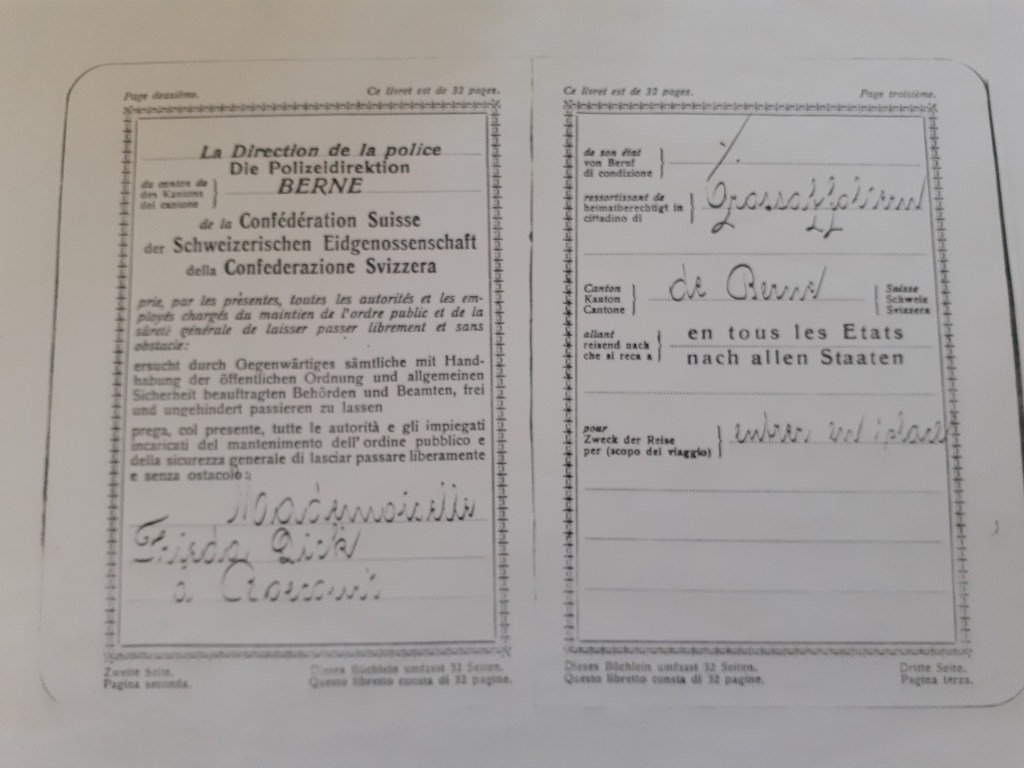 Page deuxième. Ce livret est de 32 pages.
La Direction de la police
Die Polizeidirektion
du canton de
des Kantons
del cantone
BERNE
de la Confédération Suisse
der Schweizerischen Eidgenossenschaft
della Confederazione Svizzera
prie, par les présentes, toutes les autorités et les em-
ployés chargés du maintien de l'ordre public et de la
sûreté générale de laisser passer librement et sans
obstacle:
ersucht durch Gegenwärtiges sämtliche mit Hand-
habung der öffentlichen Ordnung und allgemeinen
Sicherheit beauftragten Behörden und Beamten, frei
und ungehindert passieren zu lassen
prega, col presente, tutte le autorità e gli impiegati
incaricati del mantenimento dell'ordine pubblico e
della sicurezza generale di lasciar passare liberamente
e senza ostacolo:
Mademoiselle
Frieda Dick
à
Zweite Seite. Dieses Büchlein umfasst 32 Seiten.
Pagina seconda. Questo libretto consta di 32 pagine.
Ce livret est de 32 pages. Page troisième.
de son état
von Beruf
di condizione
ressortissant de
heimatberechtigt in
cittadino di
Grossaffoltern
Canton
Kanton
Cantone
de Berne
Suisse
Schweiz
Svizzera
allant
reisend nach
che si reca a
en tous les Etats
nach allen Staaten
pour
Zweck der Reise
per (scopo del viaggio)
entrer en place
Dieses Büchlein umfasst 32 Seiten. Dritte Seite.
Questo libretto consta di 32 pagine. Pagina terza.